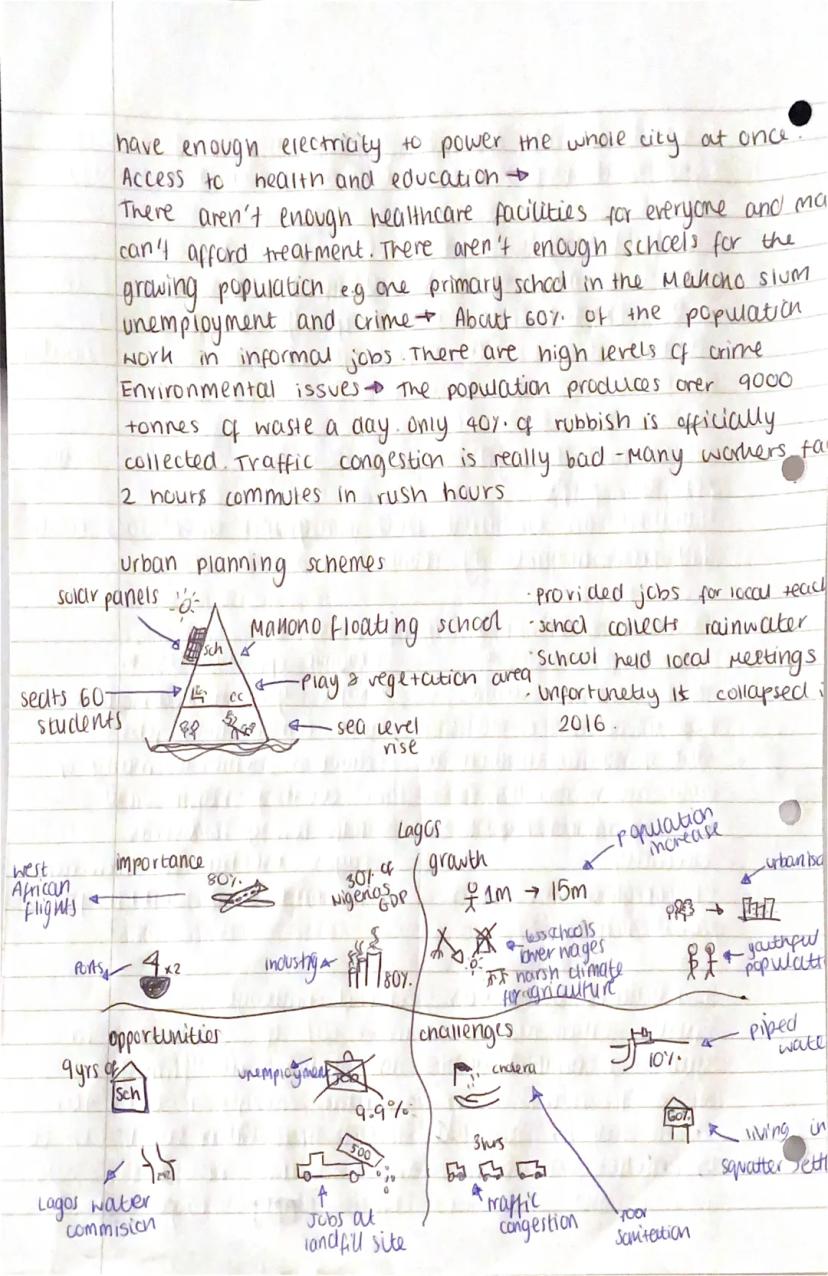 have enough electricity to power the whole city at once.
Access to health and education →
There aren't enough healthcare facilities for everyone and ma
can't afford treatment. There aren't enough schools for the
growing population e.g one primary school in the Makono slum
unemployment and crime → About 60% of the population
work in informal jobs. There are high levels of crime
Environmental issues → The population produces over 9000
tonnes of waste a day. only 40% of rubbish is officially
collected. Traffic congestion is really bad - Many workers ta
2 hours commutes in rush hours
urban planning schemes
solar panels
Makono floating school
sch
play & vegetation area
seats 60
students
cc
sea level
rise
· provided jobs for local teach
· school collects rainwater
· School held local meetings
· Unfortunetly it collapsed i
2016.
Lagos
importance
West
African
flights
80%
30% of
Nigerias
GDP
Ports
4 x2
industry
80%
growth
population
increase
1m → 15m
urbanisa
less schools
lower wages
harsh climate
for agriculture
youthful
populati
opportunities
9 yrs of
Sch
unemployment
JOB
9.9%
Lagos water
commision
500
Jobs at
landfill site
challenges
cholera
piped
wate
10%
60%
living in
squatter settl
3hrs
traffic
congestion
poor
sanitation